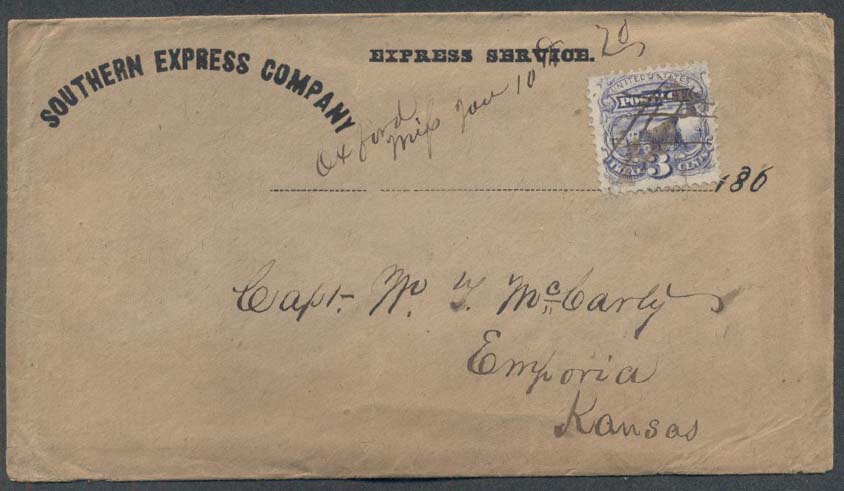 SOUTHERN EXPRESS COMPANY
EXPRESS SERVICE.
Oxford
Miss Jan 10th 70
UNITED STATES
POSTAGE
THREE 3 CENTS
186
Capt. W. T. McCarty
Emporia
Kansas